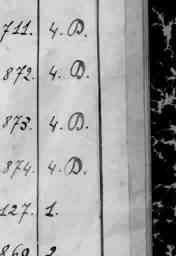 711. 4. D.
872. 4. D.
873. 4. D.
874. 4. D.
127. 1.
869. 2